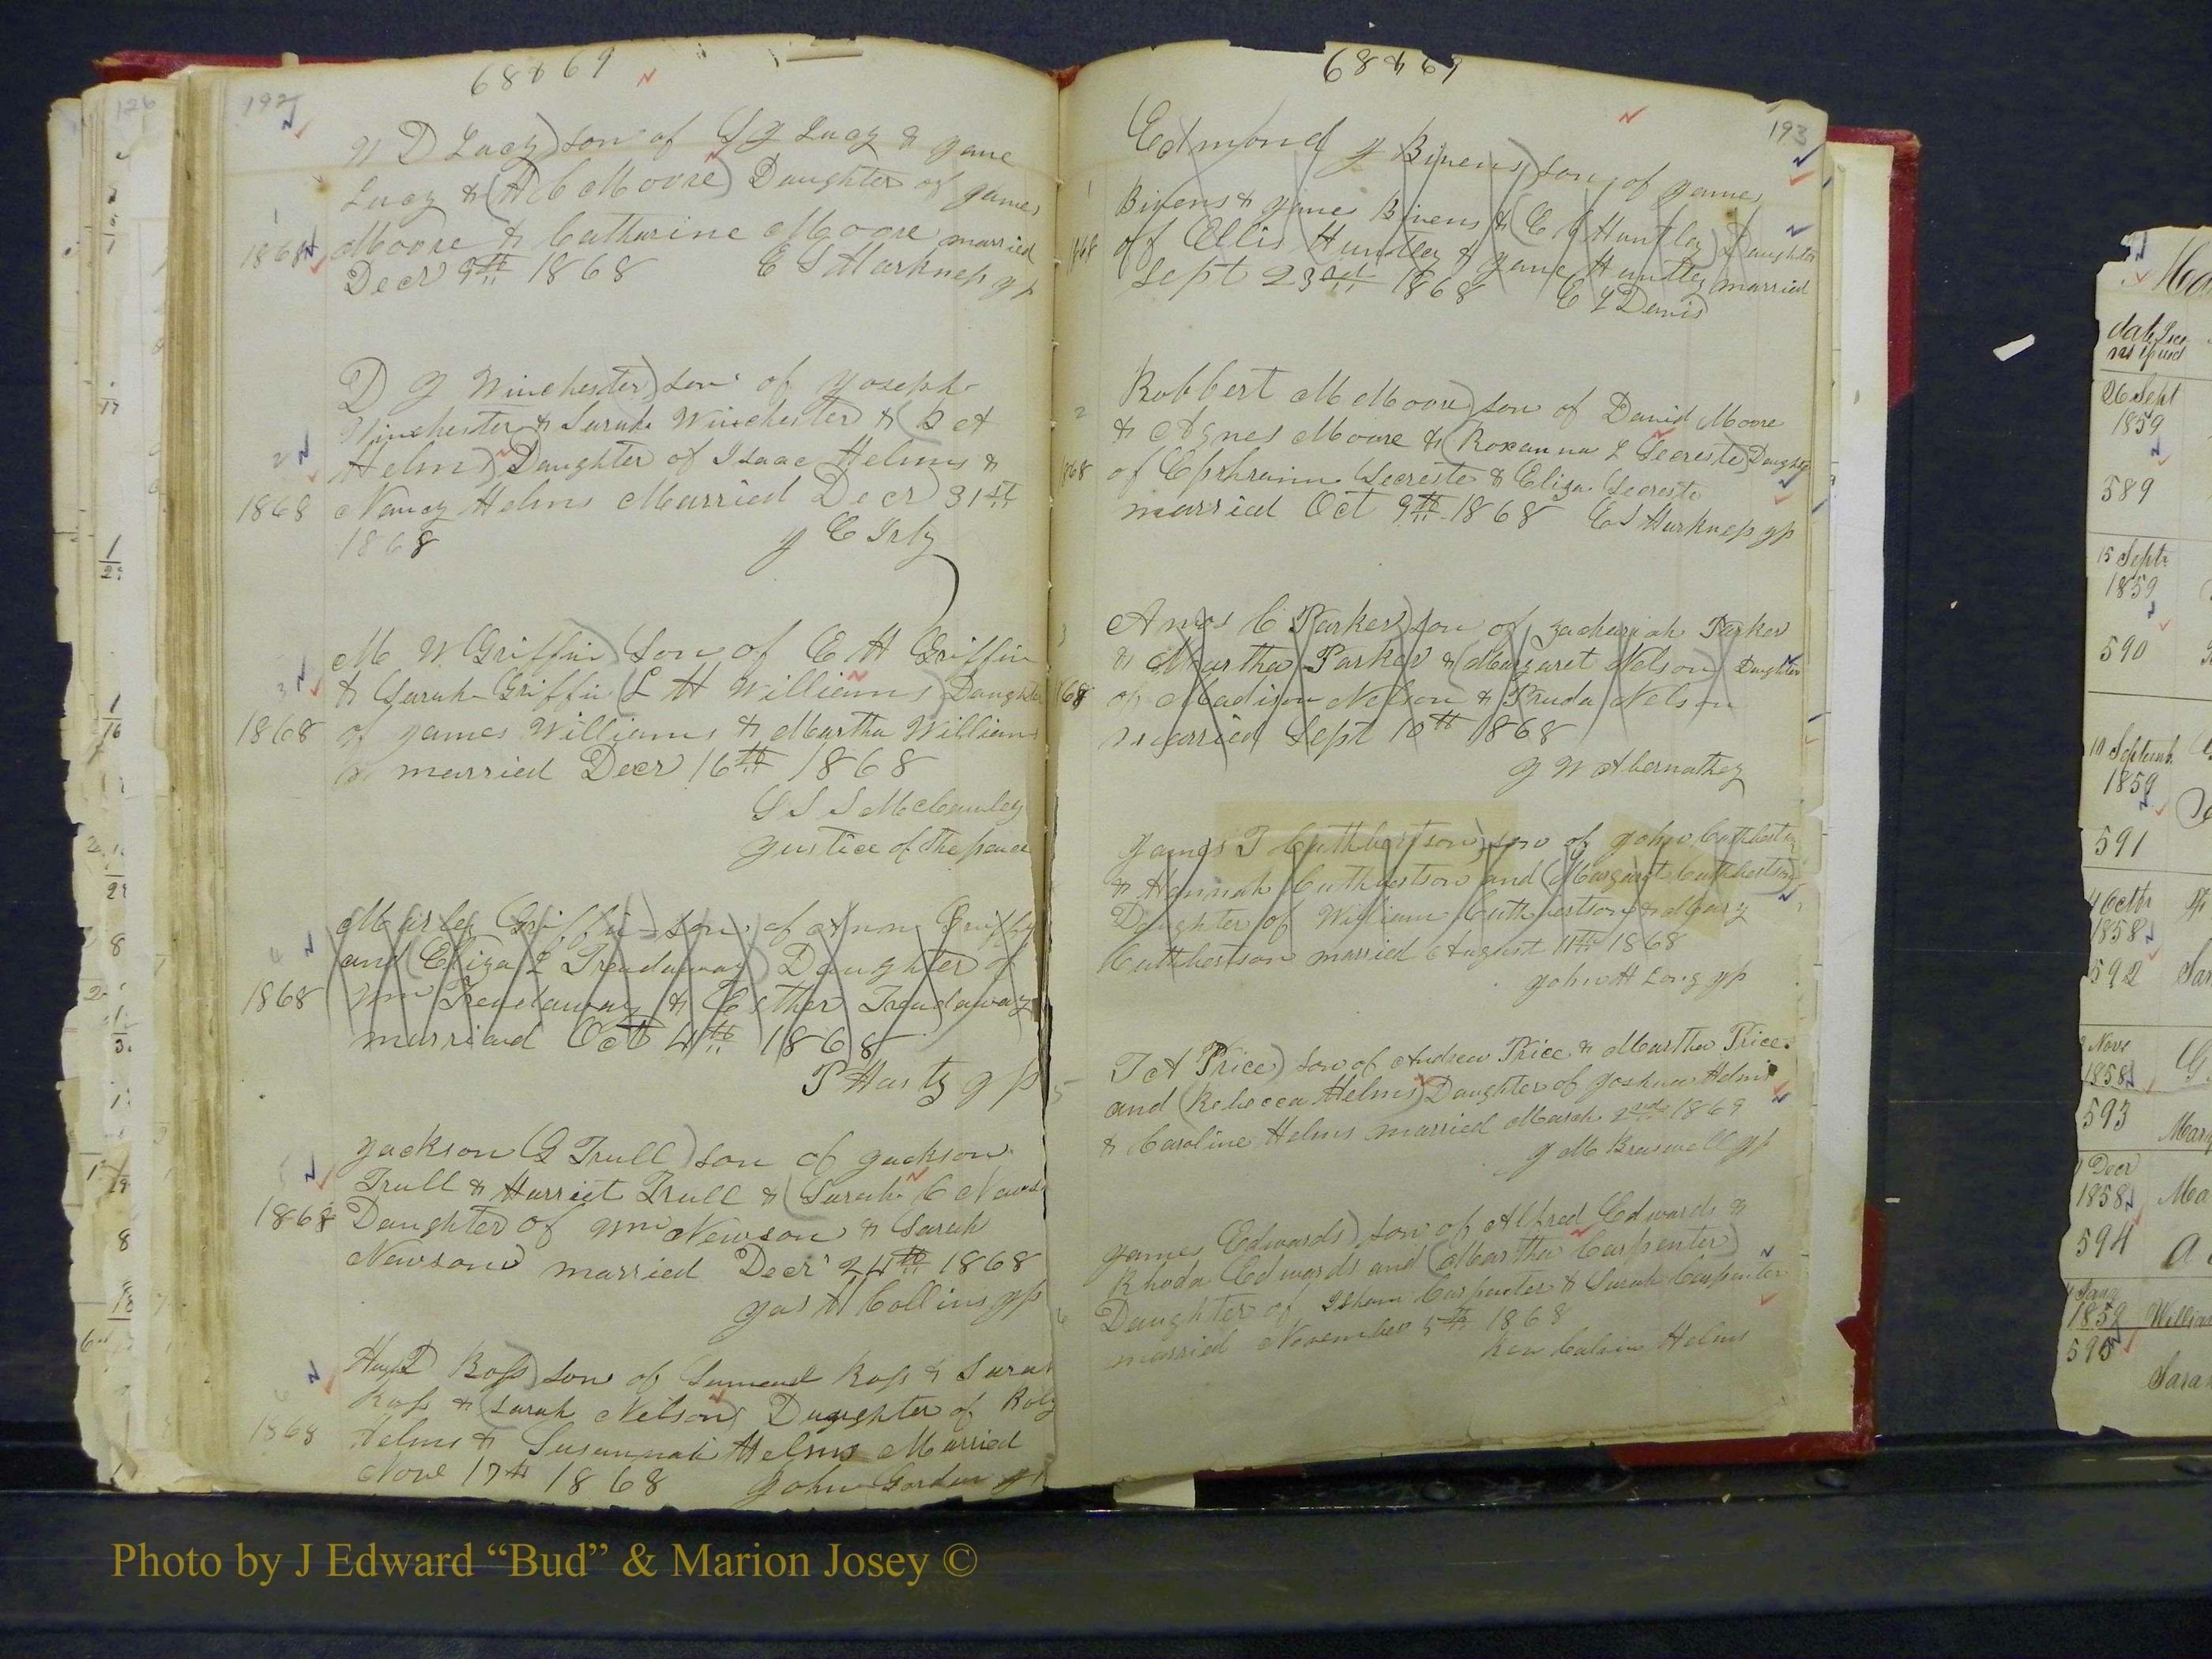 68 & 69
192
W D Lucy) son of G J Lucy & Jane
Lucy & (A C Moore) Daughter of James
1
1868 Moore & Catharine Moore married
Decr 9th 1868 E S Harkness JP
D J Winchester) son of Joseph
Winchester & Sarah Winchester & (B A
2 Helms) Daughter of Isaac Helms &
1868 Nancy Helms Married Decr 31st
1868 J E Irby
M W Griffin) Son of E H Griffin
3 & Sarah Griffin (L H Williams) Daughter
1868 of James Williams & Martha Williams
married Decr 16th 1868
S S S McCauley
Justice of the peace
4 Marley Griffin son of Anon Griffin
and (Eliza L Treadaway) Daughter of
1868 Wm Treadaway & Esther Treadaway
married Oct 4th 1868
P Hasty JP
Jackson G Trull) son of Jackson
5 Trull & Harriet Trull & (Sarah C Newson
1868 Daughter of Wm Newson & Sarah
Newson married Decr 24th 1868
Jas H Collins JP
Ross) son of Samuel Ross & Sarah
6 Ross & (Sarah Nelson) Daughter of Roly
1868 Helms & Susannah Helms Married
Nove 17th 1868 John Gordon JP
68 & 69
193
Edmond J Bivens) son of James
1 Bivens & Jane Bivens & (E C Huntley) Daughter
1868 of Ellis Huntley & Jane Huntley married
Sept 23rd 1868 E Y Davis
Robbert M Moore) son of David Moore
2 & Agnes Moore & (Roxanna L Secreste) Daughter
1868 of Ephraim Secreste & Eliza Secreste
married Oct 9th 1868 E S Harkness JP
3 Amos C Parker) son of Zachariah Parker
& Martha Parker & (Margaret Nelson) Daughter
68 of Madison Nelson & Pruda Nelson
married Sept 10th 1868
J W Abernathey
James T Cuthbertson) son of John Cuthbertson
& Hannah Cuthbertson and (Margaret Cuthbertson)
Daughter of William Cuthbertson & Mary
Cuthbertson married August 11th 1868
John H Long JP
T A Price) son of Andrew Price & Martha Price
5 and (Rebecca Helms) Daughter of Joshua Helms
& Caroline Helms married March 2nd 1869
J M Braswell JP
James Edwards) son of Alfred Edwards &
Rhoda Edwards and (Martha Carpenter)
6 Daughter of Isham Carpenter & Sarah Carpenter
married November 5th 1868
Rev Calvin Helms
126
date
26 Sept
1859
589
15 Septr
1859
590
1859
591
4 Octr
1858
592
Nove
1858
593
Decr
1858
594
1859
595
Photo by J Edward “Bud” & Marion Josey ©